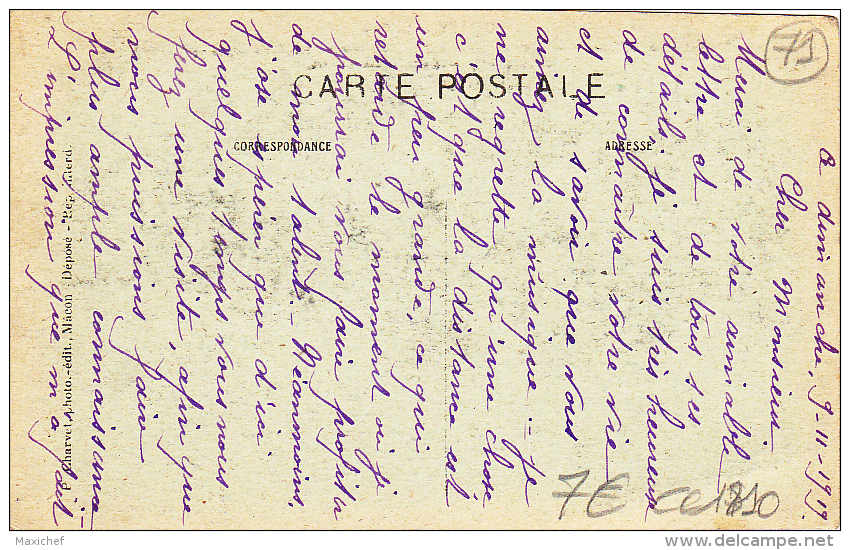 71
CARTE POSTALE
CORRESPONDANCE
ADRESSE
Ce dimanche, 9-11-1919.
Cher Monsieur
Merci de votre aimable
lettre et de tous ses
détails, je suis très heureuse
de connaître votre vie
et de savoir que vous
aimez la musique. - Je
ne regrette qu'une chose
c'est que la distance est
un peu grande, ce qui
retarde le moment où je
pourrai vous faire profiter
de mon talent. - Néanmoins,
j'ose espérer que d'ici
quelques temps vous nous
ferez une visite, afin que
nous puissions faire
plus ample connaissance
L'impression que m'a fait
Charvet, photo.-édit., Mâcon Déposé - Rep. interd.
7€
Maxichef
delcampe.net